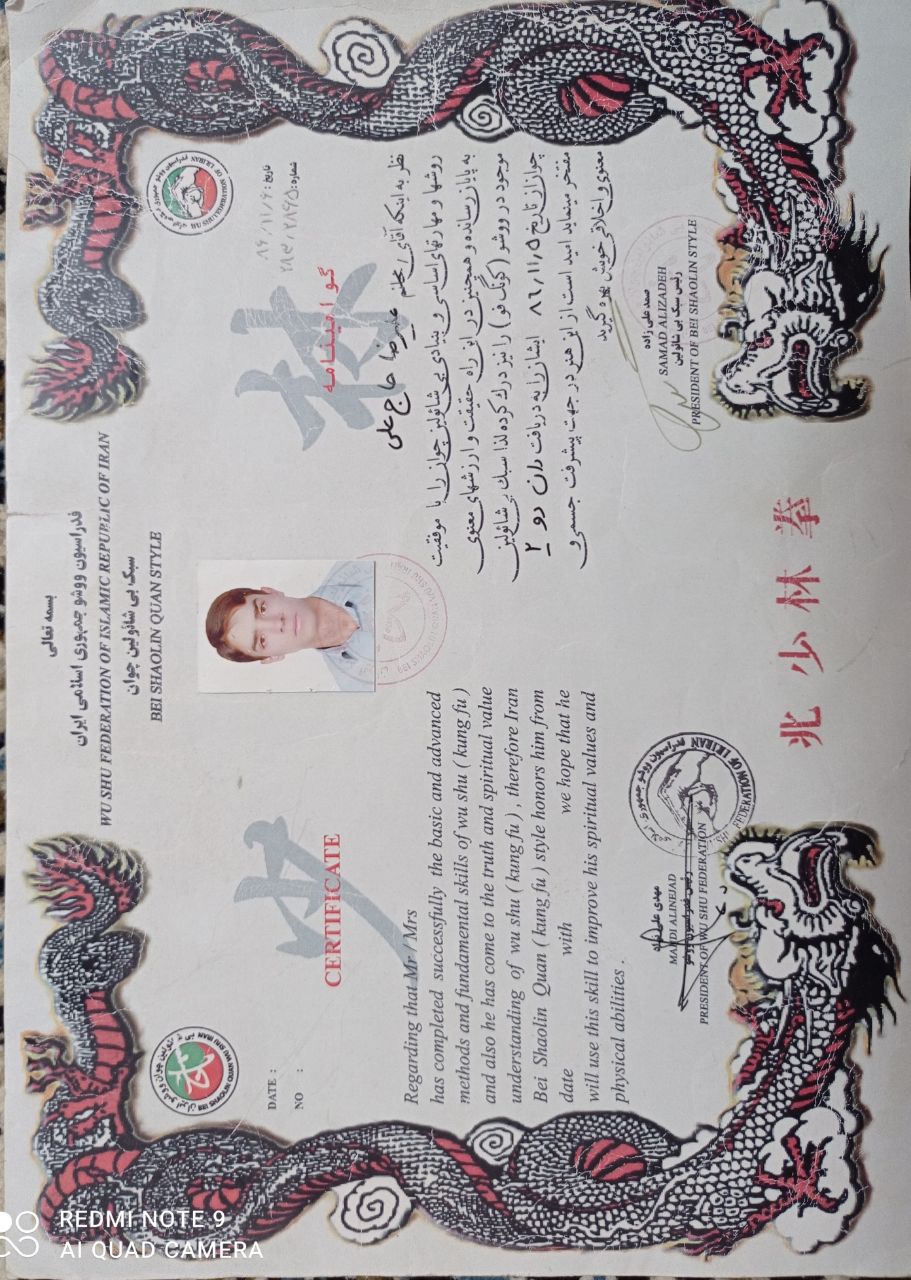 بسمه تعالی
فدراسیون ووشو جمهوری اسلامی ایران
WU SHU FEDERATION OF ISLAMIC REPUBLIC OF IRAN
سبک بی شائولین چوان
BEI SHAOLIN QUAN STYLE
DATE :
NO :
CERTIFICATE
Regarding that Mr / Mrs
has completed successfully the basic and advanced
methods and fundamental skills of wu shu ( kung fu )
and also he has come to the truth and spiritual value
understanding of wu shu ( kung fu ) , therefore Iran
Bei Shaolin Quan ( kung fu ) style honors him from
date with we hope that he
will use this skill to improve his spiritual values and
physical abilities .
مهدی علی نژاد
MAHDI ALINEJAD
رئیس فدراسیون ووشو
PRESIDENT OF WU SHU FEDERATION
تاریخ:
شماره:
گواهینامه
نظر به اینکه آقای / خانم علیرضا حاج علی
روشها و مهارتهای اساسی و بنیادی بی شائولین چوان را با موفقیت
به پایان رسانده و همچنین در این راه حقیقت و ارزشهای معنوی
موجود در ووشو ( کونگ فو ) را نیز درک کرده لذا سبک بی شائولین
چوان از تاریخ ۸۶/۱۱/۵ ایشان را به دریافت دان دو ۲
مفتخر مینماید امید است از این هنر در جهت پیشرفت جسمی و
معنوی و اخلاقی خویش بهره گیرند
صمد علی زاده
SAMAD ALIZADEH
رئیس سبک بی شائولین
PRESIDENT OF BEI SHAOLIN STYLE
北少林拳
REDMI NOTE 9
AI QUAD CAMERA